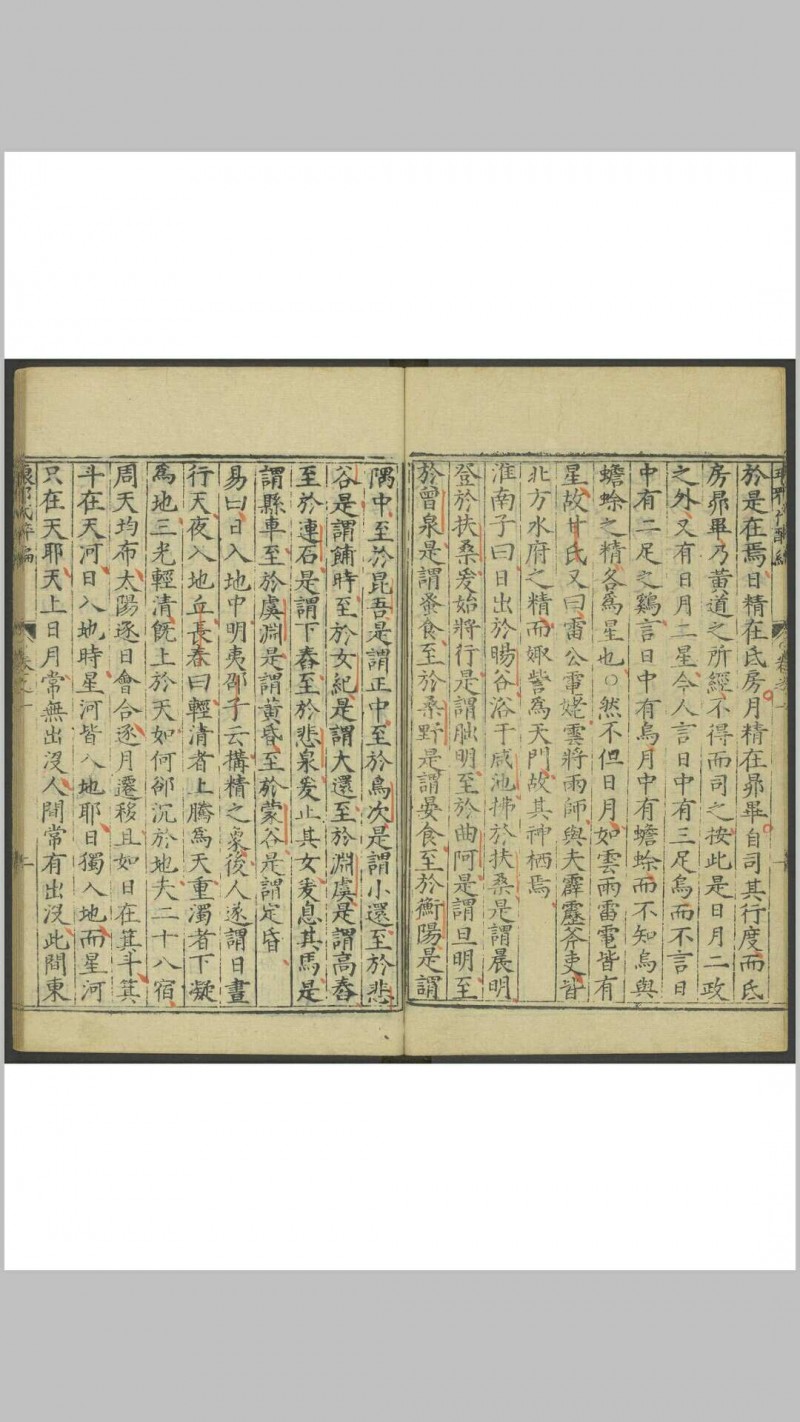 於是在焉日精在氐房月精在昴畢自司其行度而氐
房昴畢乃黃道之所經不得而司之按此是日月二政
之外又有日月二星今人言日中有三足烏而不言日
中有二足之鷄言日中有烏月中有蟾蜍而不知烏與
蟾蜍之精各爲星也○然不但日月如雲雨雷電皆有
星故甘氏又曰雷公電姥雲將雨師與夫霹靂斧吏皆
北方水府之精而娵訾爲天門故其神栖焉
淮南子曰日出於暘谷浴于咸池拂於扶桑是謂晨明
登於扶桑爰始將行是謂朏明至於曲阿是謂旦明至
於曾泉是謂蚤食至於桑野是謂晏食至於衡陽是謂
隅中至於昆吾是謂正中至於鳥次是謂小還至於悲
谷是謂餔時至於女紀是謂大還至於淵虞是謂高舂
至於連石是謂下舂至於悲泉爰止其女爰息其馬是
謂縣車至於虞淵是謂黃昏至於蒙谷是謂定昏
易曰日入地中明夷邵子云搆精之象後人遂謂日晝
行天夜入地丘長春曰輕清者上騰爲天重濁者下凝
爲地三光輕清旣上於天如何郤沉於地夫二十八宿
周天均布太陽逐日會合逐月遷移且如日在箕斗箕
斗在天河日入地時星河皆入地耶日獨入地而星河
只在天耶天上日月常無出沒人間常有出沒此間東